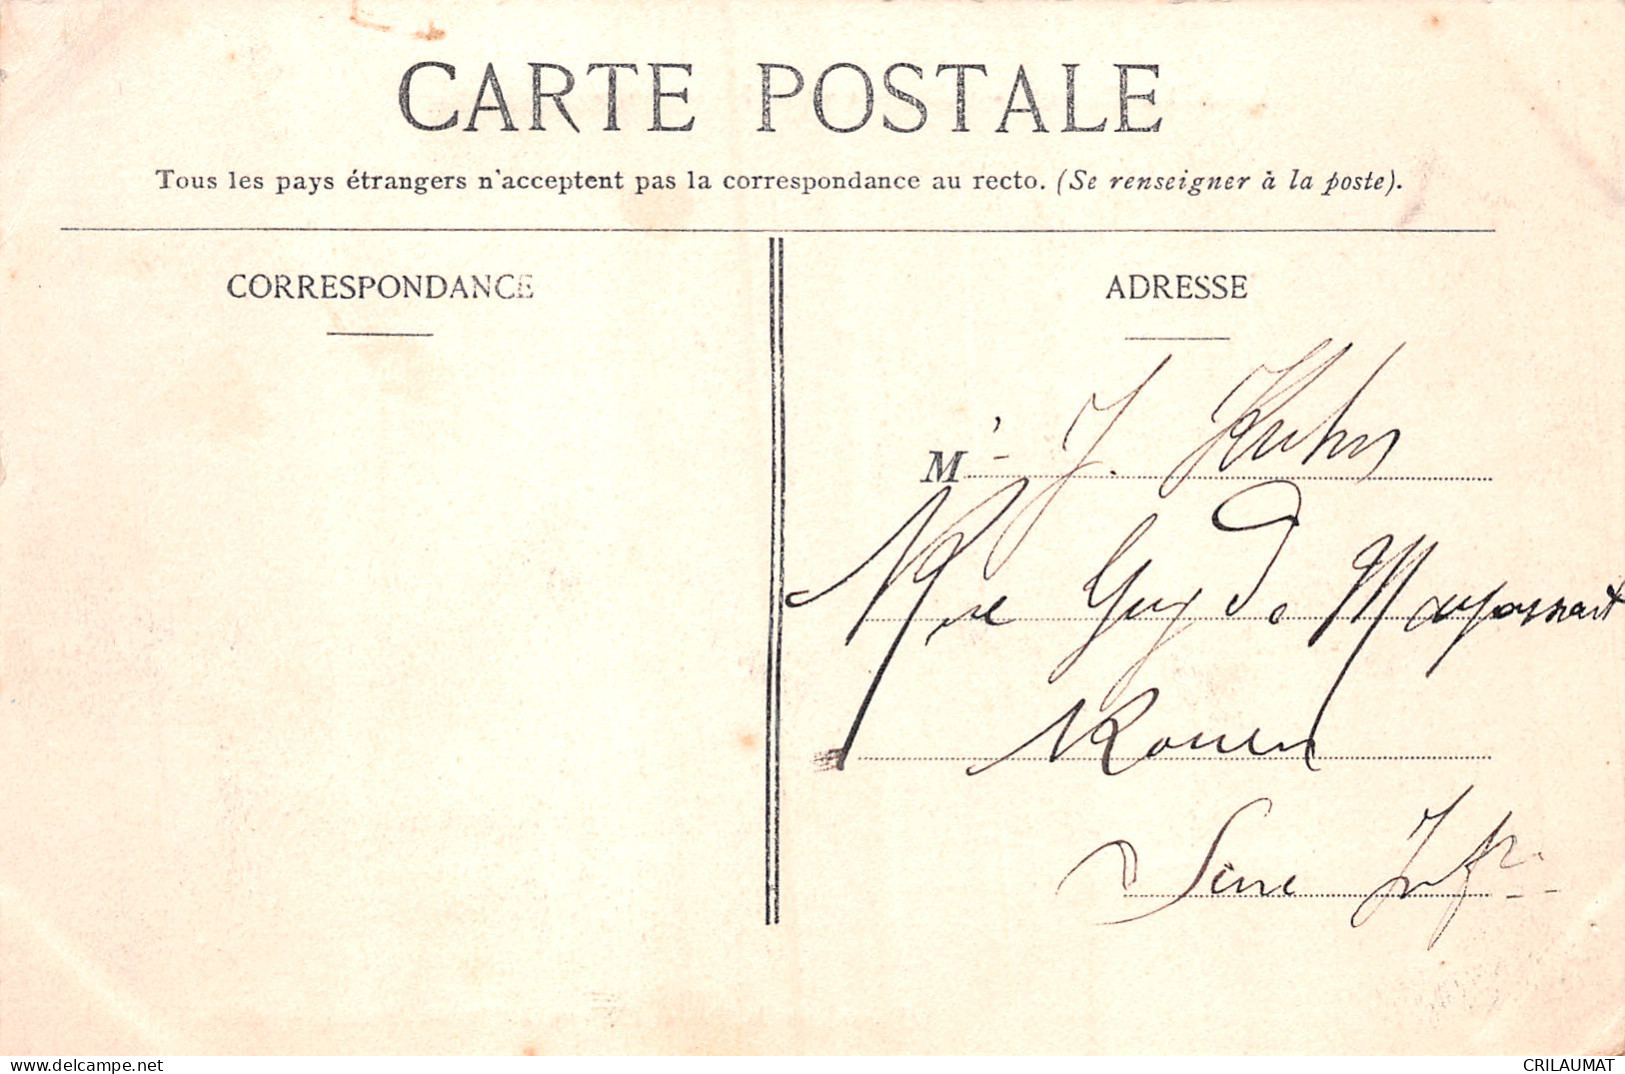 CARTE POSTALE
Tous les pays étrangers n'acceptent pas la correspondance au recto. (Se renseigner à la poste).
CORRESPONDANCE
ADRESSE
M' J. Kuhn
Rue Guy de Maupassant
Rouen
Seine Infre
www.delcampe.net
CRILAUMAT